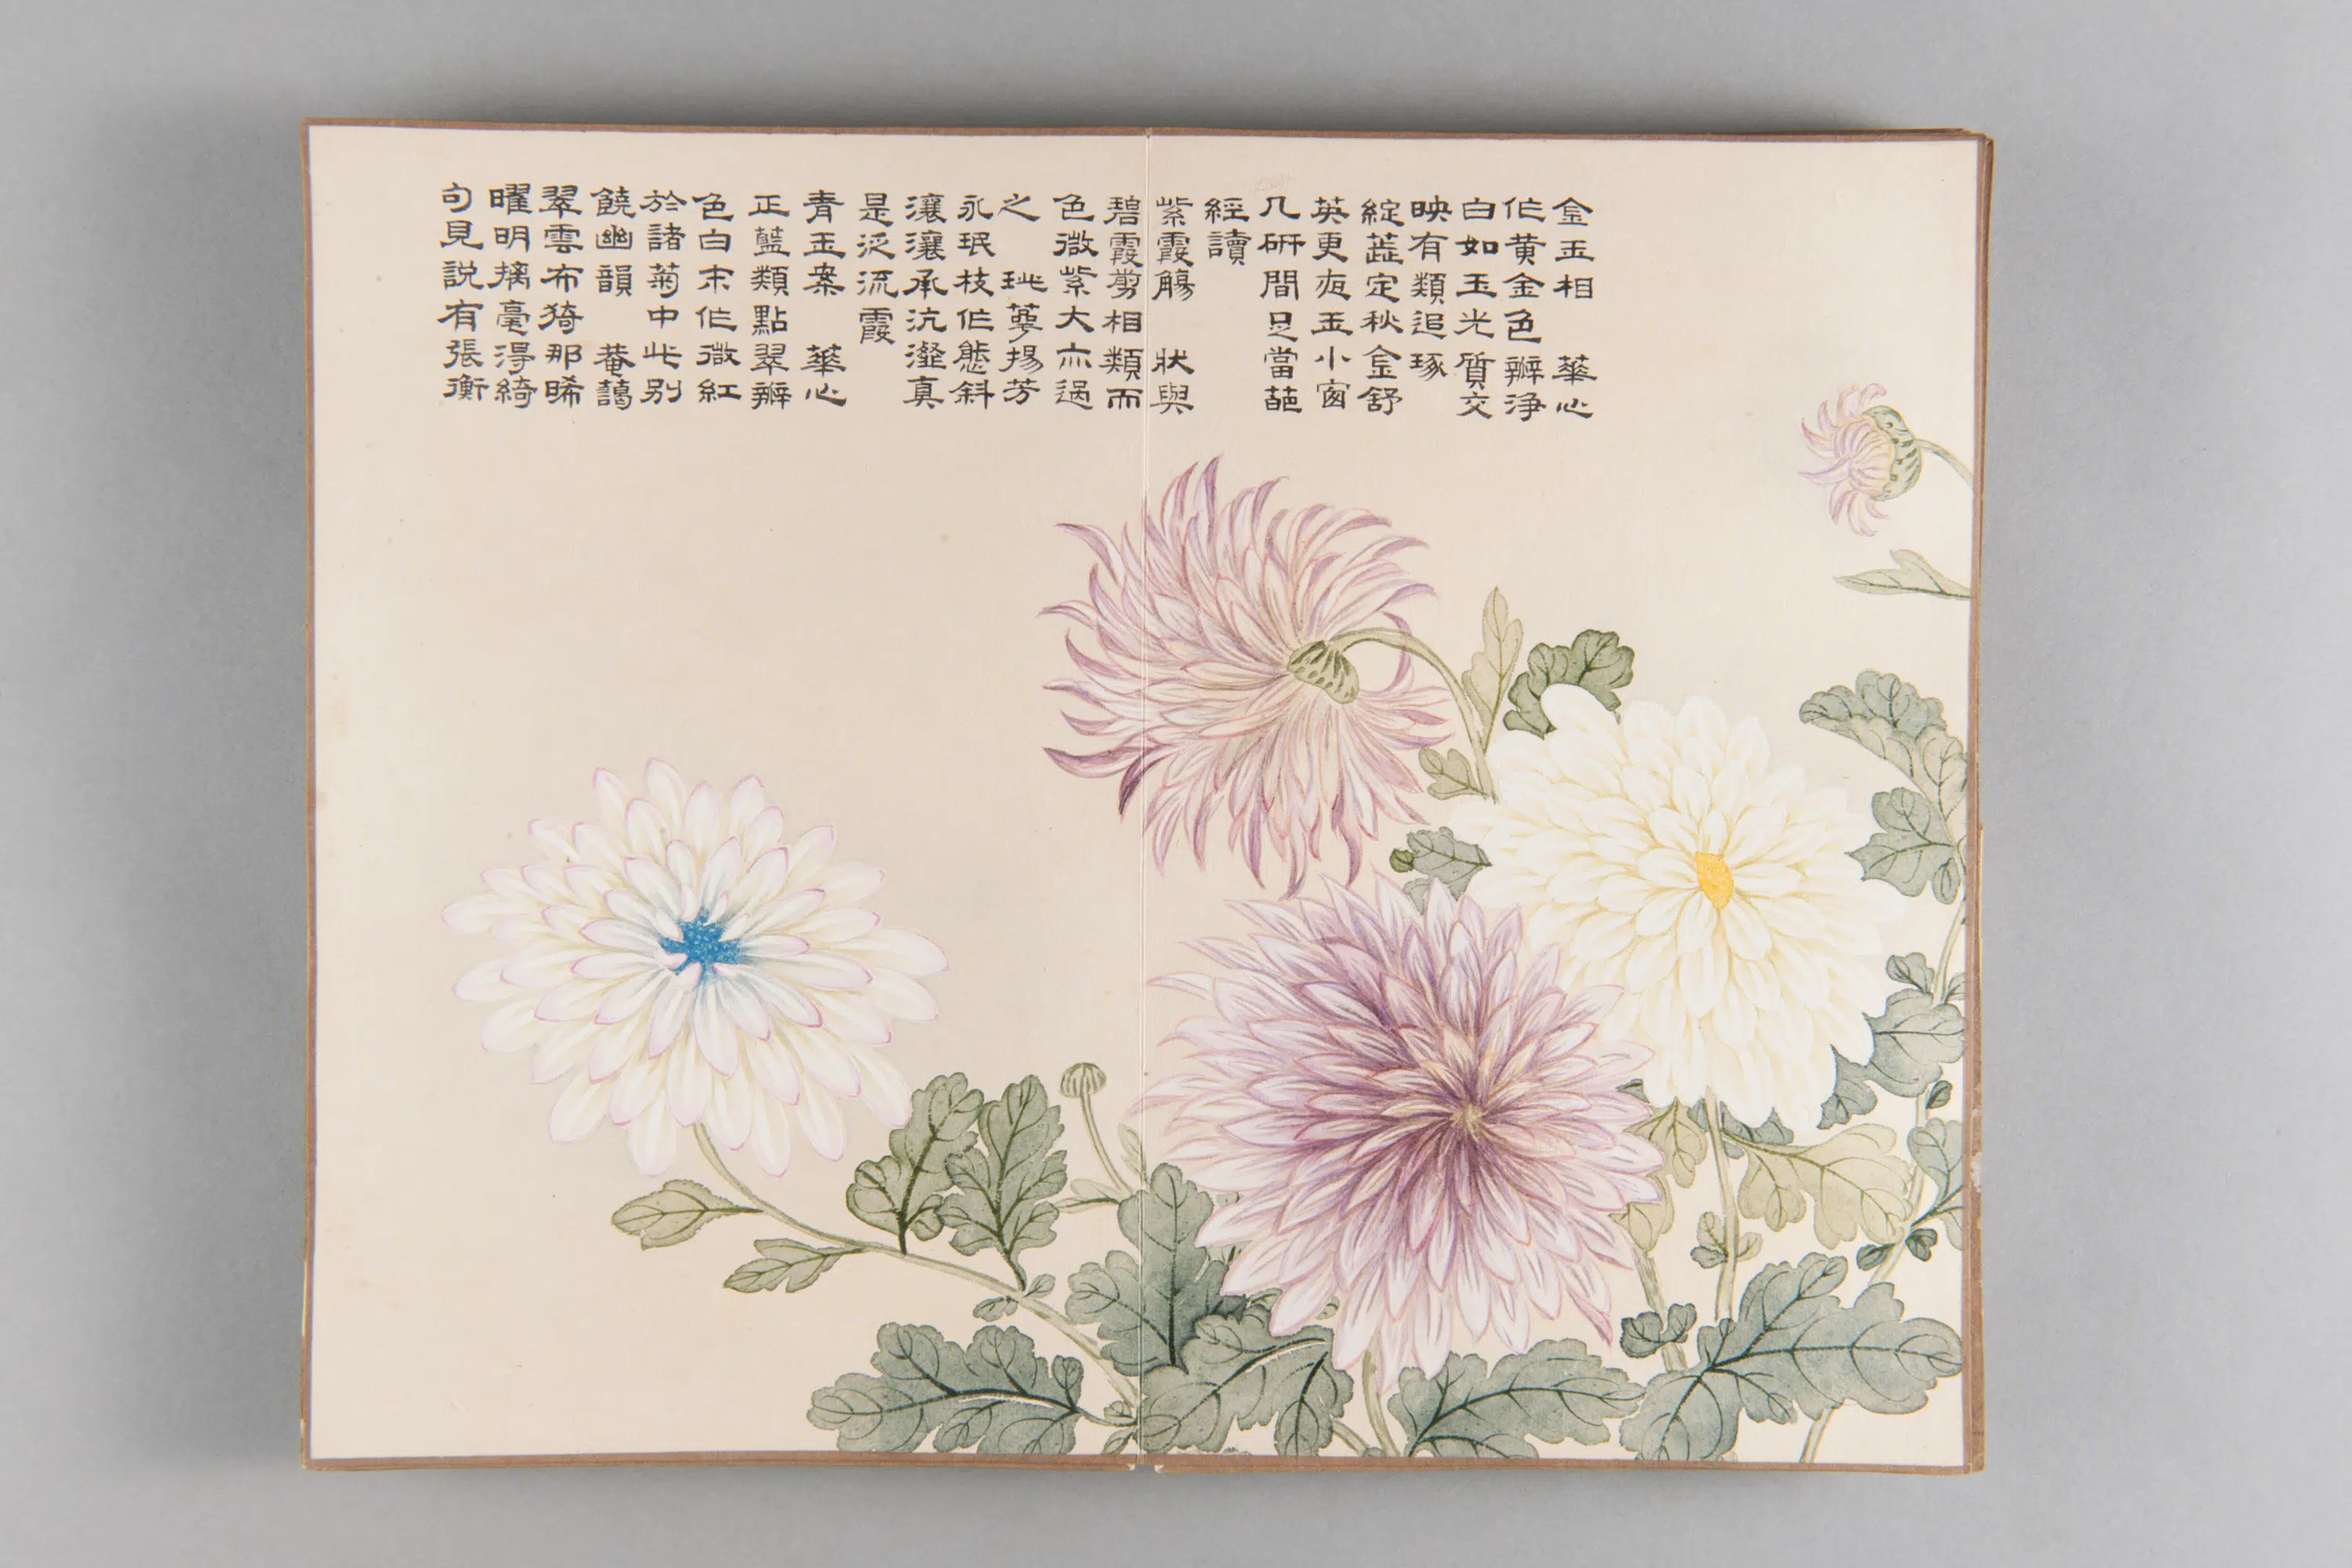 金玉相 華心
作黄金色瓣净
白如玉光質交
映有類追琢
綻蕋定秋金舒
英更夜玉小窗
几研間足當葩
經讀
紫霞觴 狀與
碧霞剪相類而
色微紫大亦過
之 玭萼揚芳
永珉枝作態斜
瀼瀼承沆瀣真
是泛流霞
青玉案 華心
正藍類點翠瓣
色白末作微紅
於諸菊中此别
饒幽韻 菴藹
翠雲布猗那晞
曜明摛毫淂綺
句見説有張衡